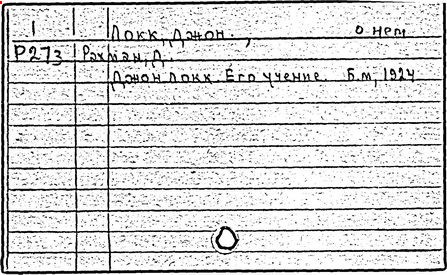 1 Локк, Джон., о нем
Р273 Рахман, Д.
Джон Локк. Его учение. Б.м, 1924